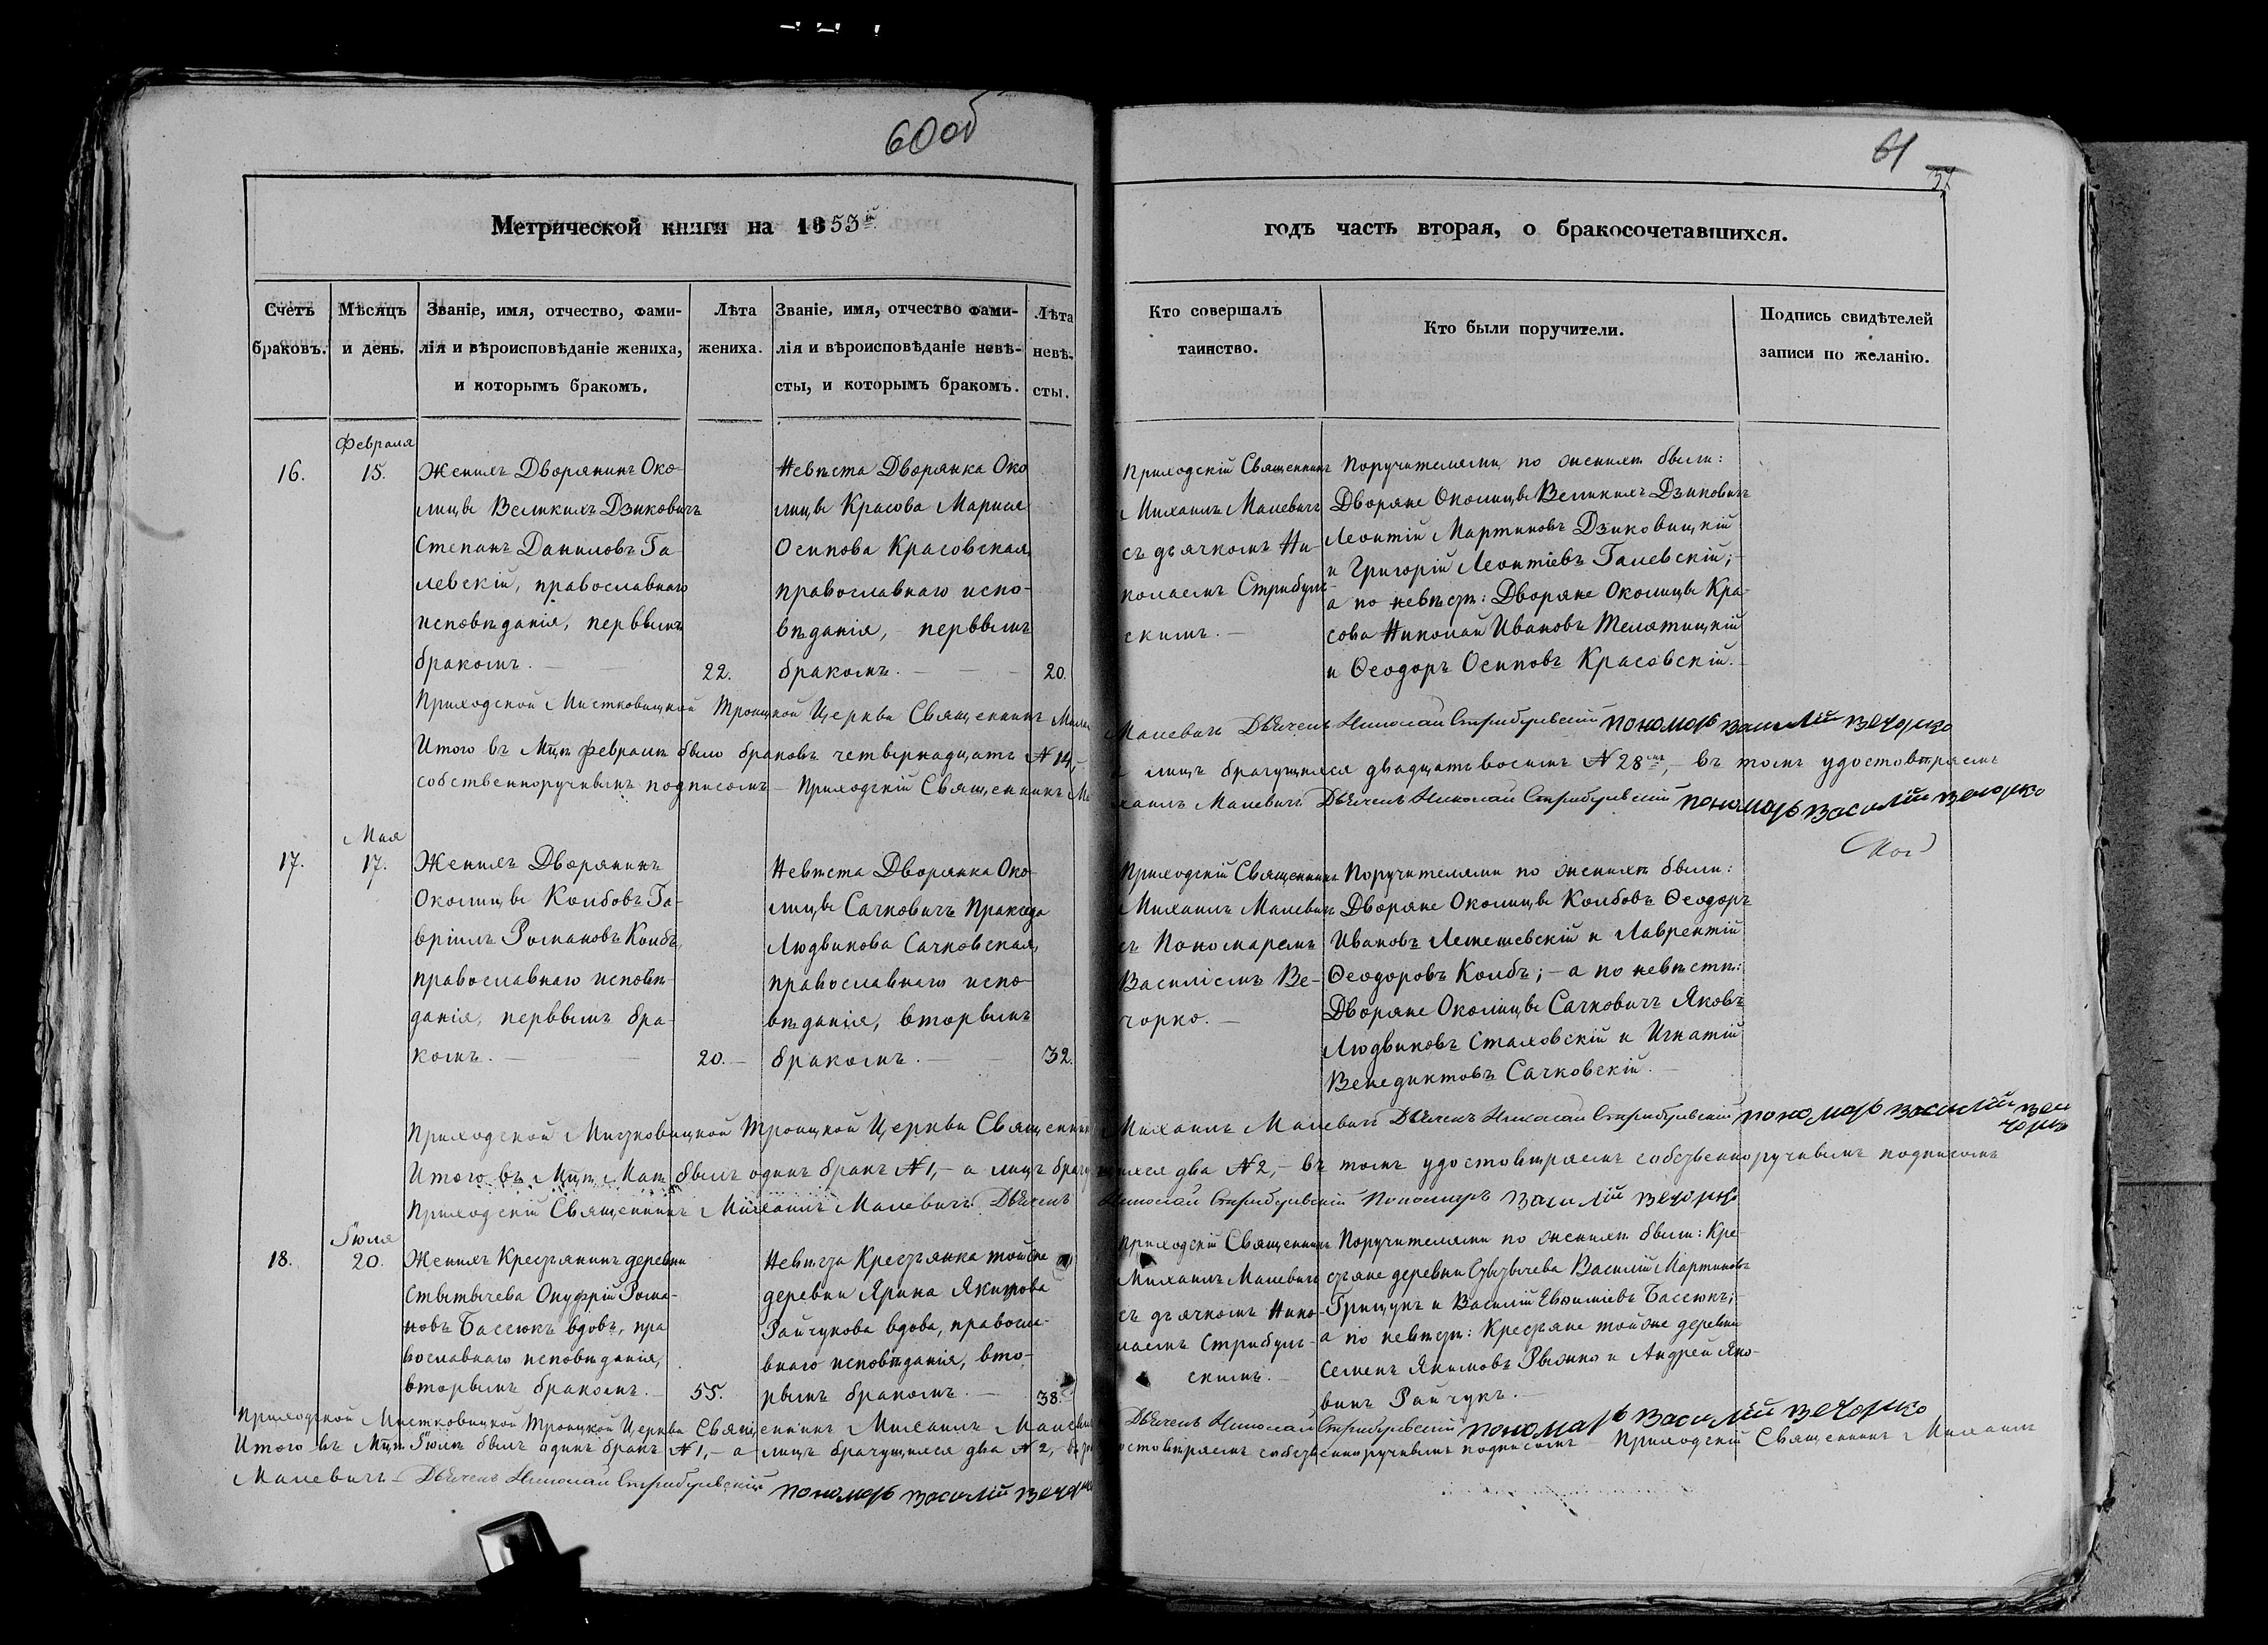 60 об
Метрической книги на 1853й
Счетъ браковъ.
Мѣсяцъ и день.
Званіе, имя, отчество, фами-
лія и вѣроисповѣданіе жениха,
и которымъ бракомъ.
Лѣта
жениха.
Званіе, имя, отчество фами-
лія и вѣроисповѣданіе невѣ-
сты, и которымъ бракомъ.
Лѣта
невѣ-
сты.
61
годъ часть вторая, о бракосочетавшихся.
Кто совершалъ
таинство.
Кто были поручители.
Подпись свидѣтелей
записи по желанію.
16.
Февраля
15.
Женихъ Дворянинъ Око-
лицы Великихъ Дзиковичъ
Степанъ Даниловъ Га-
левскій, православнаго
исповѣданія, первымъ
бракомъ.
22.
Невѣста Дворянка Око
лицы Красова Марися
Осипова Красовская
православнаго испо-
вѣданія, – первымъ
бракомъ.
20.
Приходскій Священникъ
Михаилъ Малевичъ
съ дьячкомъ Ни-
колаемъ Стрибуль-
скимъ. –
Поручителями по женихѣ были:
Дворяне Околицы Великихъ Дзиковичъ
Леонтій Мартиновъ Дзиковицкій
и Григорій Леонтіевъ Галевскій; –
а по невѣстѣ: Дворяне Околицы Кра-
сова Николай Ивановъ Телятицкій
и Ѳеодоръ Осиповъ Красовскій.
Приходской Мистковицкой Троицкой Церкви Священникъ Михаилъ Малевичъ Дьячекъ Николай Стрибульскій пономарь василій вечорко
Итого въ Мцѣ февралѣ было браковъ четырнадцать N 14, – а лицъ брачущихся двадцать восемь N 28мь, – въ томъ удостовѣряемъ
собственноручнымъ подписомъ – Приходскій Священникъ Михаилъ Малевичъ Дьячекъ Николай Стрибульскій пономарь василій вечорко
17.
Мая
17.
Женихъ Дворянинъ
Околицы Колбовъ Га-
вріилъ Романовъ Колбъ,
православнаго исповѣ-
данія, первымъ бра-
комъ. –
20. –
Невѣста Дворянка Око-
лицы Сачковичъ Пракседа
Людвикова Сачковская,
православнаго испо-
вѣданія, вторымъ
бракомъ. –
32.
Приходскій Священникъ
Михаилъ Малевичъ
съ Пономаремъ
Василіемъ Ве-
чорко. –
Поручителями по женихѣ были:
Дворяне Околицы Колбовъ Ѳеодоръ
Ивановъ Лемешевскій и Лаврентій
Ѳеодоровъ Колбъ; – а по невѣстѣ:
Дворяне Околицы Сачковичъ Яковъ
Людвиковъ Стаховскій и Игнатій
Венедиктовъ Сачковскій. –
Приходской Мистковицкой Троицкой Церкви Священникъ Михаилъ Малевичъ Дьячекъ Николай Стрибульскій пономарь василій вечорко
Итого въ Мцѣ Маѣ былъ одинъ бракъ N 1, – а лицъ брачущихся два N 2, – въ томъ удостовѣряемъ собственноручнымъ подписомъ
Приходскій Священникъ Михаилъ Малевичъ Дьячекъ Николай Стрибульскій Пономарь Василій вечорко
18.
Іюля
20.
Женихъ Крестьянинъ деревни
Стытычева Онуфрій Рома-
новъ Басюкъ вдовъ, пра
вославнаго исповѣданія,
вторымъ бракомъ. –
55.
Невѣста Крестьянка той же
деревни Ярина Якимова
Райчукова вдова, правосла-
внаго исповѣданія, вто-
рымъ бракомъ. –
38.
Приходскій Священникъ
Михаилъ Малевичъ
съ дьячкомъ Нико-
лаемъ Стрибуль-
скимъ. –
Поручителями по женихѣ были: Кре-
стьяне деревни Стытычева Василій Мартиновъ
Грицукъ и Василій Евѳиміевъ Басюкъ; –
а по невѣстѣ: Крестьяне той же деревни
Семенъ Якимовъ Рыжко и Андрей Яко-
винъ Райчукъ. –
Приходской Мистковицкой Троицкой Церкви Священникъ Михаилъ Малевичъ Дьячекъ Николай Стрибульскій пономарь василій вечорко
Итого въ Мцѣ Іюлѣ былъ одинъ бракъ N 1, – а лицъ брачущихся два N 2, – въ томъ удостовѣряемъ собственноручнымъ подписомъ Приходскій Священникъ Михаилъ
Малевичъ – Дьячекъ Николай Стрибульскій пономарь василій вечорко